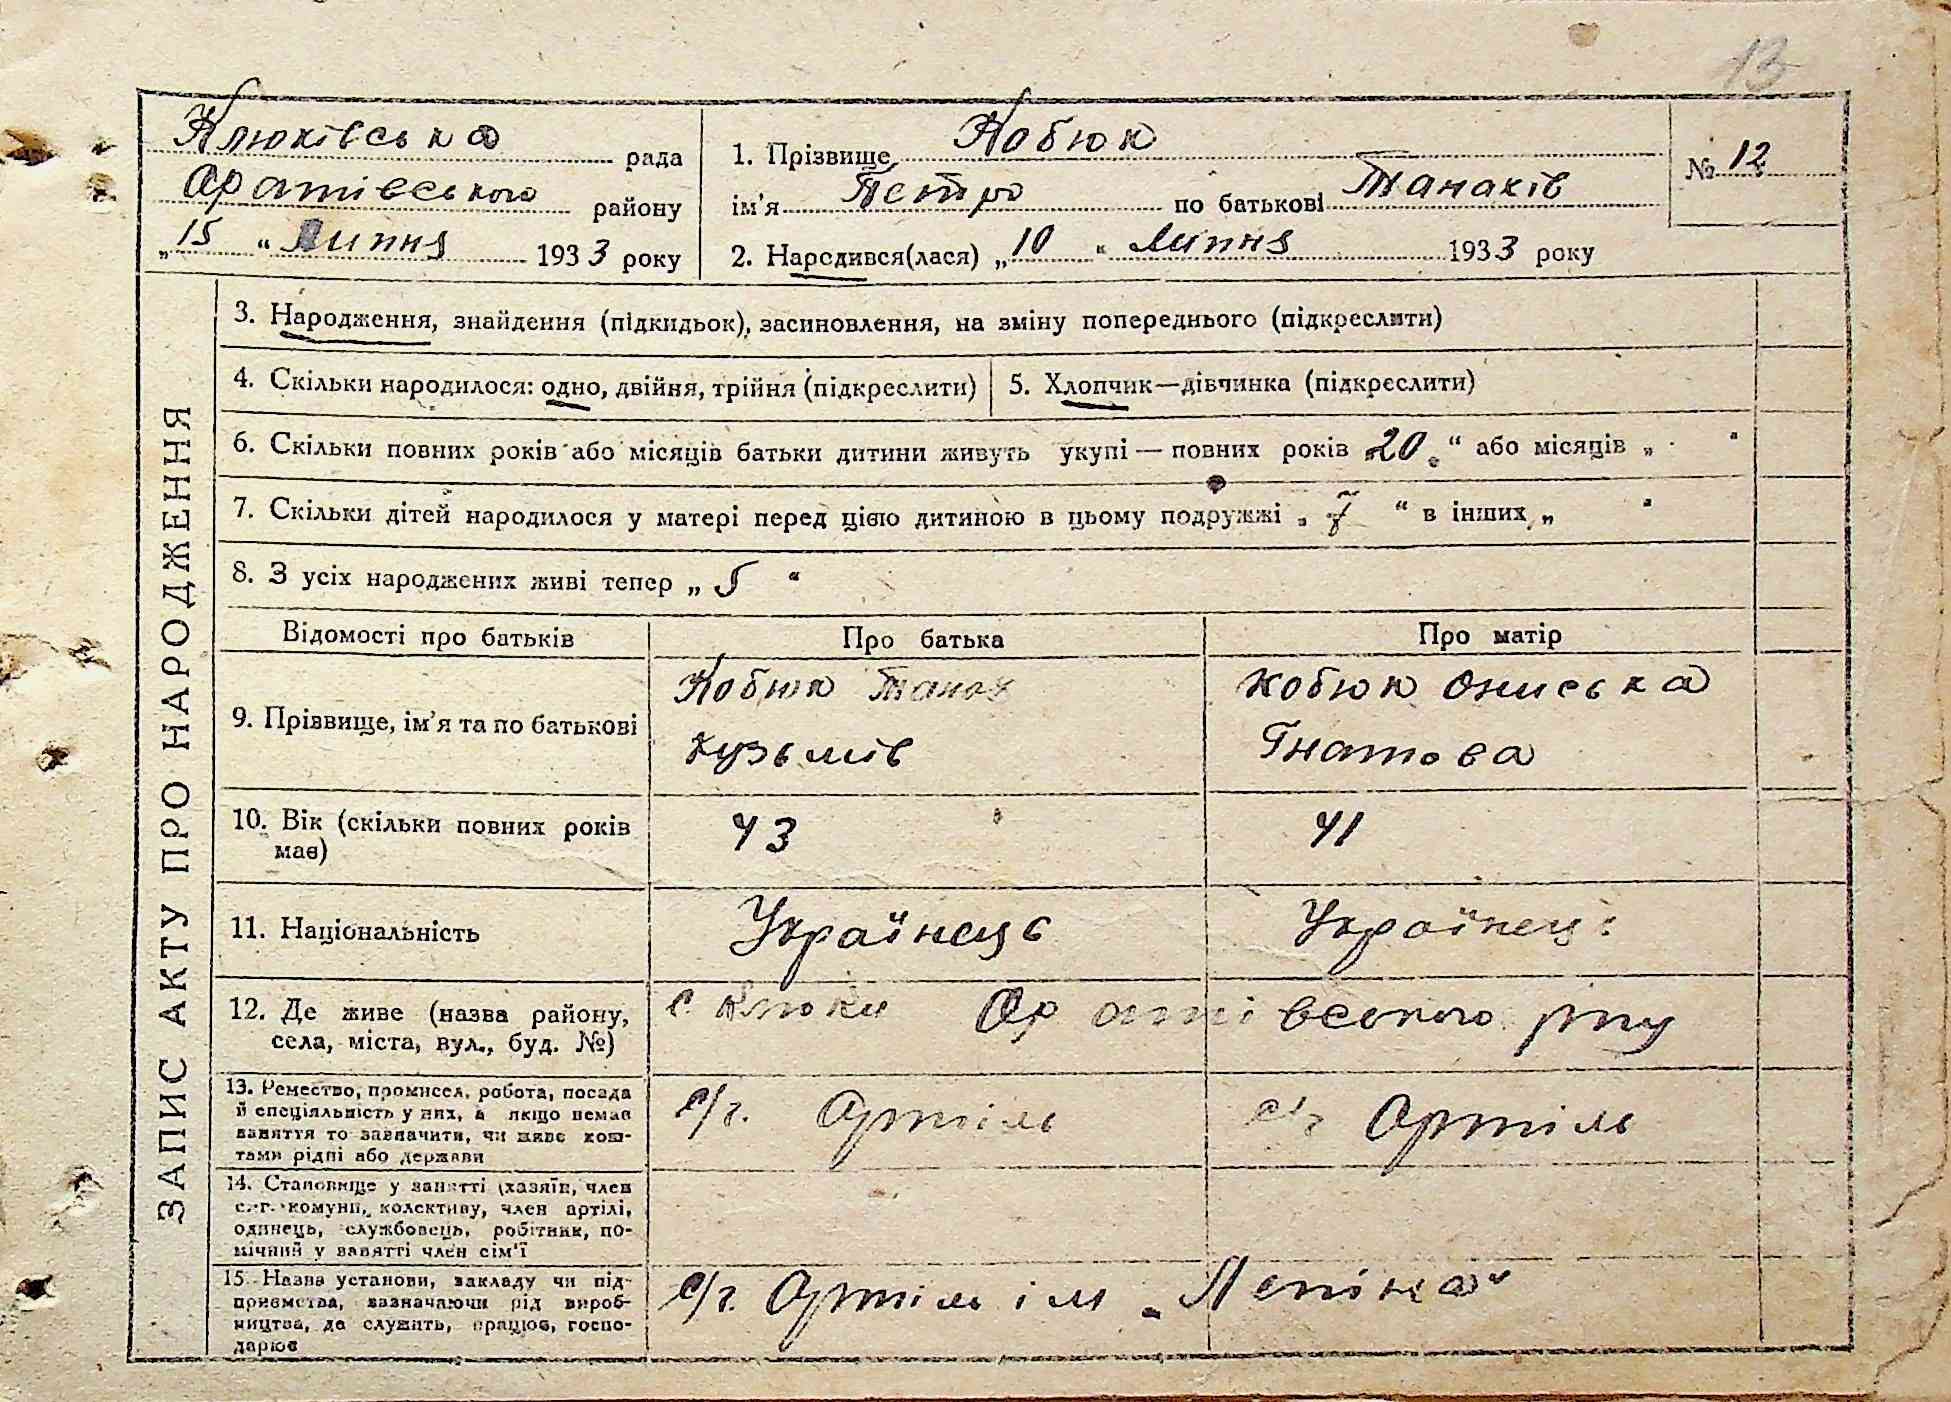 13
Клюківська рада
Оратівського району
„15“ Липня 1933 року
1. Прізвище Кобюк
ім'я Петро по батькові Танахів
2. Народився(лася) „10“ Липня 1933 року
№ 12
ЗАПИС АКТУ ПРО НАРОДЖЕННЯ
3. Народження, знайдення (підкидьок), засиновлення, на зміну попереднього (підкреслити)
4. Скільки народилося: одно, двійня, трійня (підкреслити)
5. Хлопчик—дівчинка (підкреслити)
6. Скільки повних років або місяців батьки дитини живуть укупі — повних років „20“ або місяців „ “
7. Скільки дітей народилося у матері перед цією дитиною в цьому подружжі „7“ в інших „ “
8. З усіх народжених живі тепер „5“
Відомості про батьків Про батька Про матір
9. Прізвище, ім'я та по батькові
Кобюк Танах
Кузьмів
Кобюк Ониська
Гнатова
10. Вік (скільки повних років
має)
43 41
11. Національність Українець Українець
12. Де живе (назва району,
села, міста, вул., буд. №)
с. Клюки Оратівського р-ну
13. Ремество, промисел, робота, посада
й спеціяльність у них, а якщо немає
заняття то зазначити, чи живе кош-
тами рідні або держави
с/г. Артіль с/г Артіль
14. Становище у занятті (хазяїн, член
с.-г. комуни, колективу, член артілі,
одинець, службовець, робітник, по-
мічний у занятті член сім'ї
15. Назва установи, закладу чи під-
приємства, зазначаючи рід вироб-
ництва, де служить, працює, госпо-
дарює
с/г. Артіль ім „Леніна“